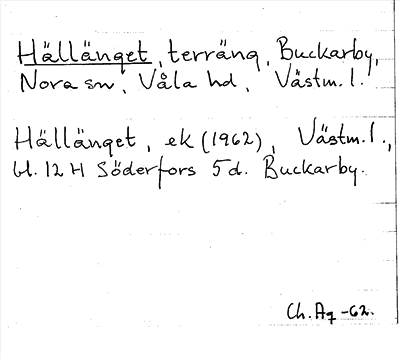 Hällänget, terräng, Buckarby,
Nora sn, Våla hd, Västm. l.
Hällänget, ek (1962), Västm. l.,
bl. 12 H Söderfors 5d. Buckarby.
Ch. Ag -62.